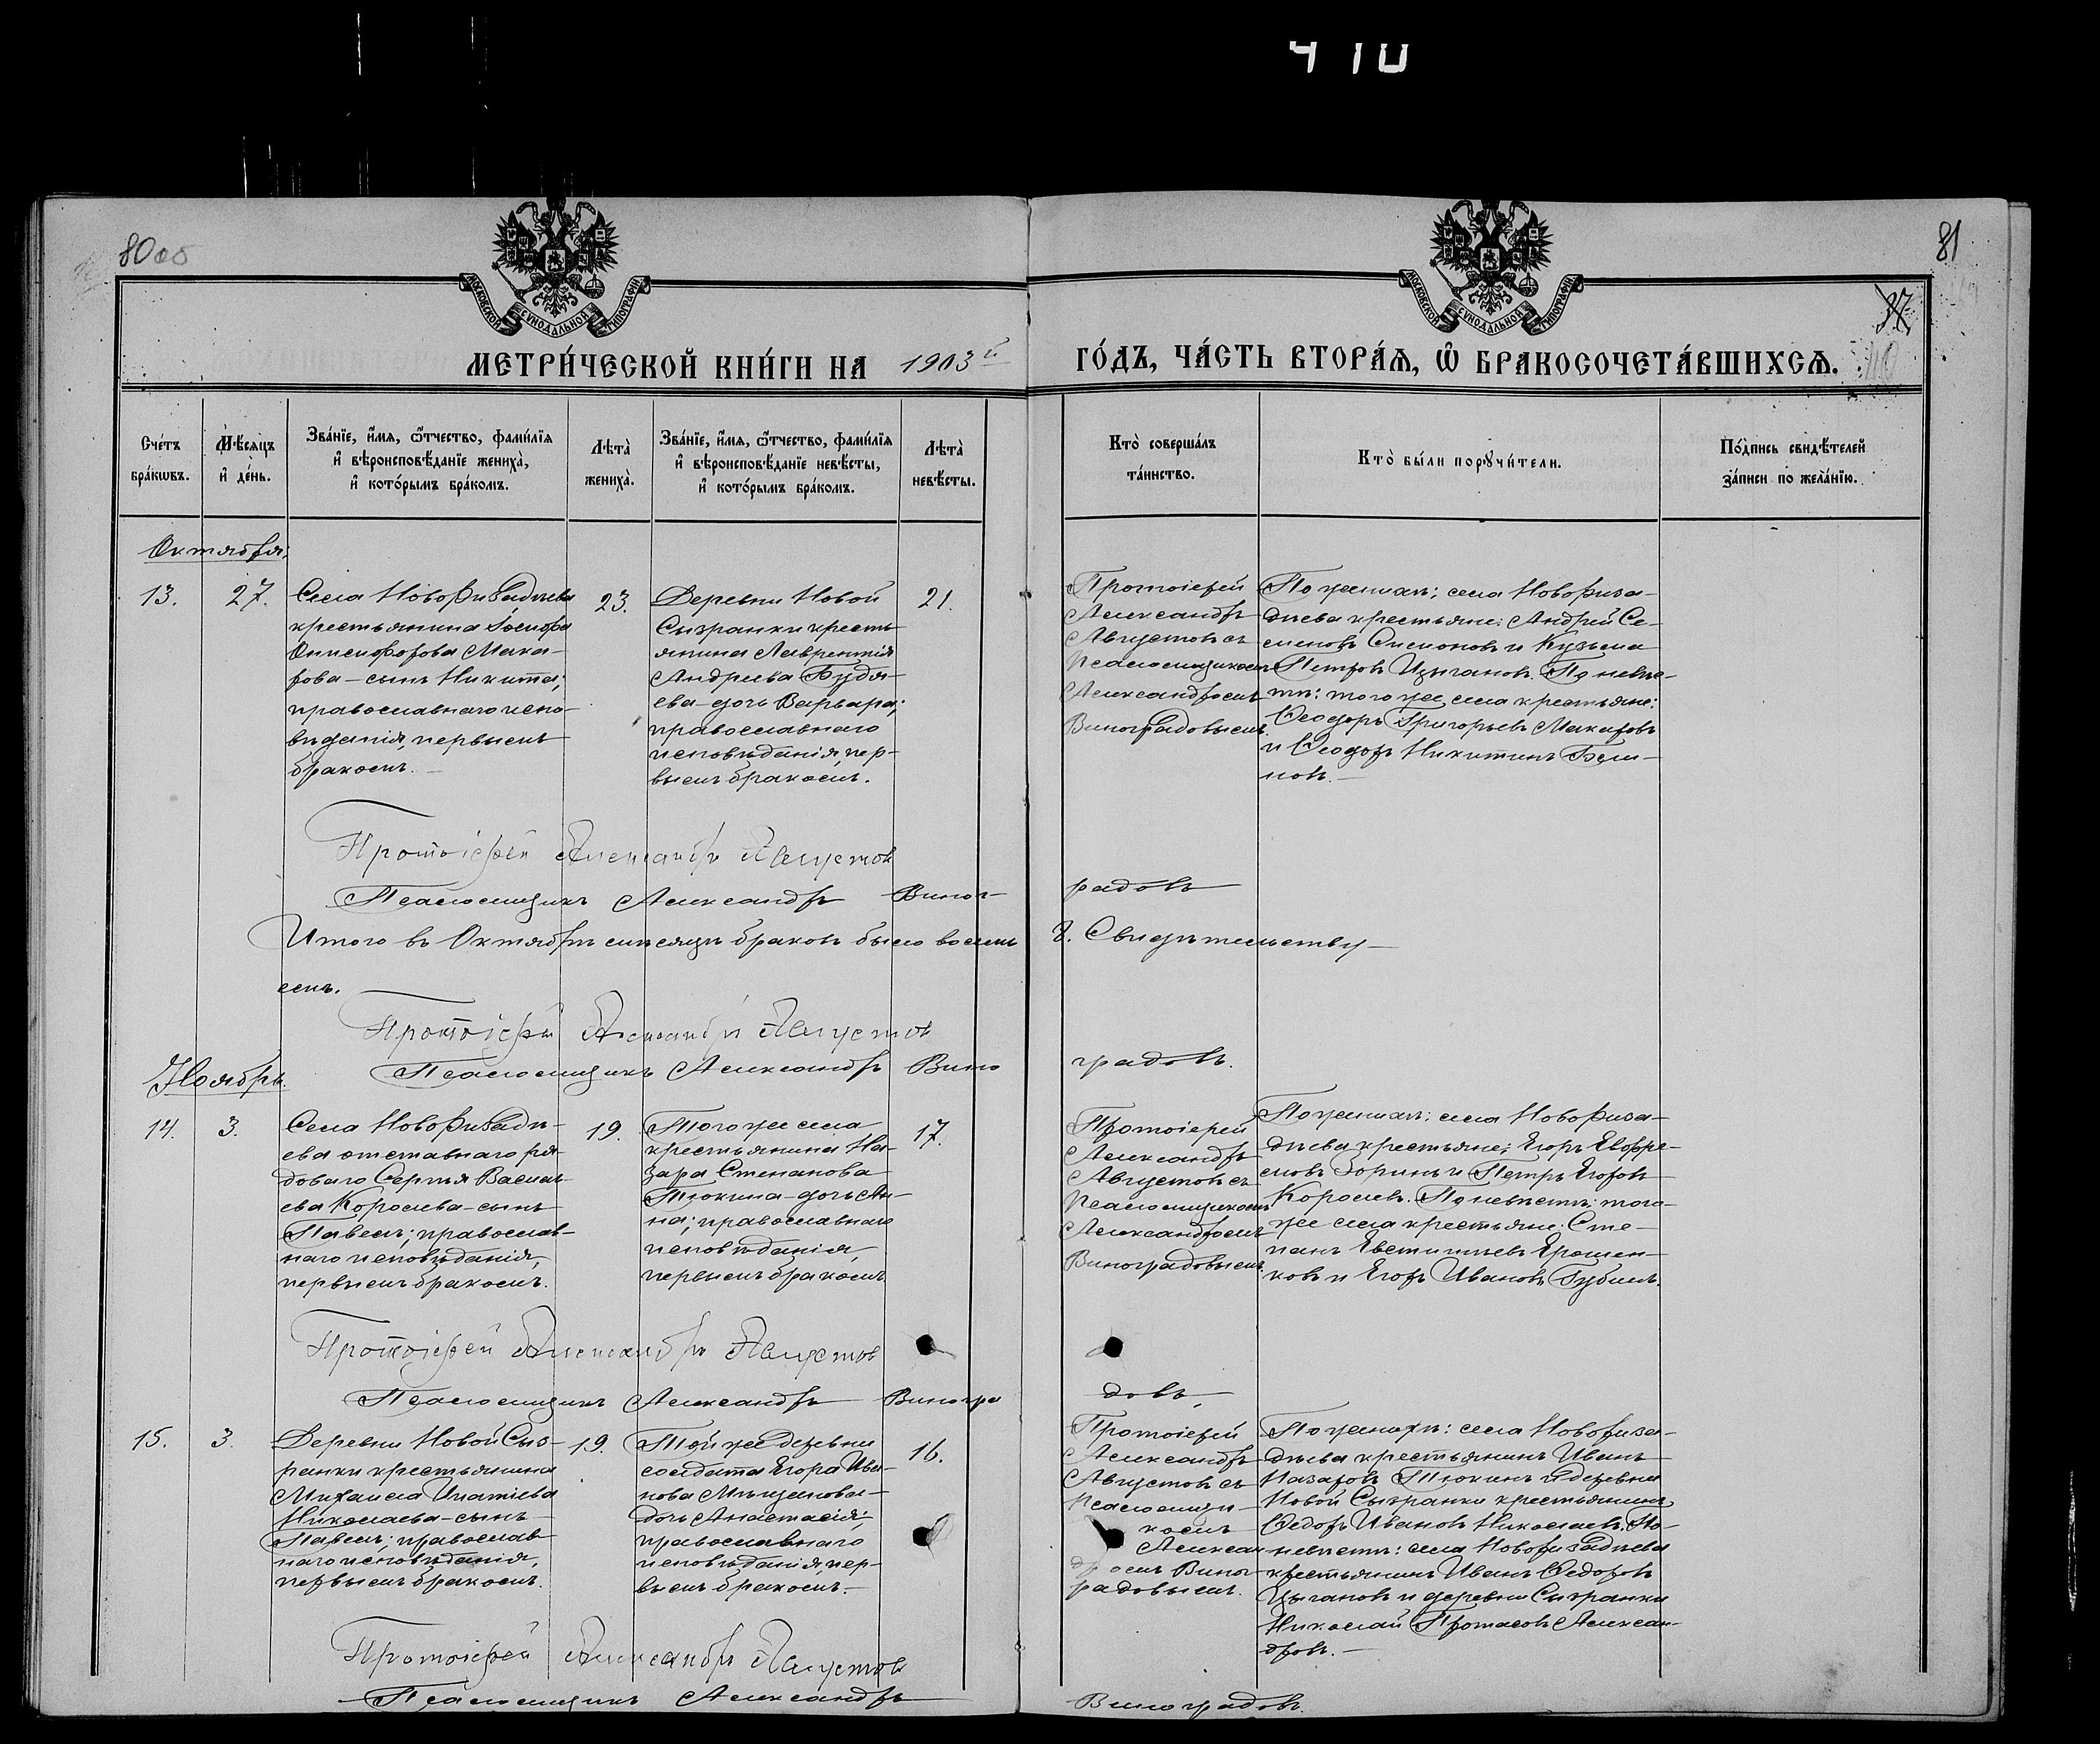 410
80
81
37
МОСКОВСКОЙ СѴНОДАЛЬНОЙ ТИПОГРАФІИ
МОСКОВСКОЙ СѴНОДАЛЬНОЙ ТИПОГРАФІИ
МЕТРИ́ЧЕСКОЙ КНИ́ГИ НА 1903й ГО́ДЪ, ЧА́СТЬ ВТОРА́Ѧ, Ѡ БРАКОСОЧЕТА́ВШИХСѦ.
Сче́тъ бра́кѡвъ.
Мѣ́сяцъ и де́нь.
Зва́нїе, и́мя, ѻ́тчество, фами́лїя и вѣроисповѣ́данїе жениха̀, и кото́рымъ бра́комъ.
Лѣта̀ жениха̀.
Зва́нїе, и́мя, ѻ́тчество, фами́лїя и вѣроисповѣ́данїе невѣ́сты, и кото́рымъ бра́комъ.
Лѣта̀ невѣ́сты.
Кто̀ соверша́лъ та́инство.
Кто̀ бы́ли порꙋчи́тели.
По́дпись свидѣ́телей за́писи по жела́нїю.
Октября;
13.
27.
Села Новоризадѣева
крестьянина Іосифа
Онисифорова Мака-
рова – сынъ Никита;
православнаго испо-
вѣданія, первымъ
бракомъ. –
23.
Деревни Новой
Сызранки кресть-
янина Лаврентія
Андреева Будя-
ева – дочь Варвара;
православнаго
исповѣданія, пер-
вымъ бракомъ.
21.
Протоіерей
Александръ
Августовъ съ
псаломщикомъ
Александромъ
Виноградовымъ.
По женихѣ: села Новориза-
дѣева крестьяне: Андрей Се-
меновъ Симоновъ и Кузьма
Петровъ Цыгановъ. По невѣс-
тѣ: того же села крестьяне:
Ѳеодоръ Григорьевъ Макаровъ
и Ѳеодоръ Никитинъ Бели-
новъ. –
Протоіерей Александръ Августовъ
Псаломщикъ Александръ Виног-
радовъ
Итого въ Октябрѣ мѣсяцѣ браковъ было восемь 8. Свидѣтельству-
емъ.
Протоіерей Александръ Августовъ
Псаломщикъ Александръ Вино
градовъ.
Ноябрь.
14.
3.
Села Новоризадѣ-
ева отставнаго ря-
доваго Сергѣя Василь-
ева Королева – сынъ
Павелъ; православ-
наго исповѣданія,
первымъ бракомъ.
19.
Того же села
крестьянина На-
зара Степанова
Тюкина – дочь Ан-
на; православнаго
исповѣданія,
первымъ бракомъ
17.
Протоіерей
Александръ
Августовъ съ
псаломщикомъ
Александромъ
Виноградовымъ.
По женихѣ: села Новориза-
дѣева крестьяне; Егоръ Евфре-
мовъ Зоринъ и Петръ Егоровъ
Королевъ. По невѣстѣ: того-
же села крестьяне: Сте-
панъ Евстигнѣевъ Ерошен-
ковъ и Егоръ Ивановъ
Протоіерей Александръ Августовъ
Псаломщикъ Александръ Виногра
довъ,
15.
3.
Деревни Новой Сыз-
ранки крестьянина
Михаила Игнатіева
Николаева – сынъ
Павелъ; православ-
наго исповѣданія,
первымъ бракомъ.
19.
Той же деревни
солдата Егора Ива-
нова Мѣщанова –
дочь Анастасія;
православнаго
исповѣданія, пер-
вымъ бракомъ. –
16.
Протоіерей
Александръ
Августовъ съ
псаломщи-
комъ
Алексан
дромъ Виног
радовымъ.
По женихѣ: села Новориза-
дѣева крестьянинъ Иванъ
Назаровъ Тюкинъ и деревни
Новой Сызранки крестьянинъ
Ѳедоръ Ивановъ Николаевъ. По-
невѣстѣ: села Новоризадѣева
крестьянинъ Иванъ Ѳедоровъ
Цыгановъ и деревни Сызранки
Николай Протасовъ Алексан-
дровъ. –
Протоіерей Александръ Августовъ
Псаломщикъ Александръ
Виноградовъ.